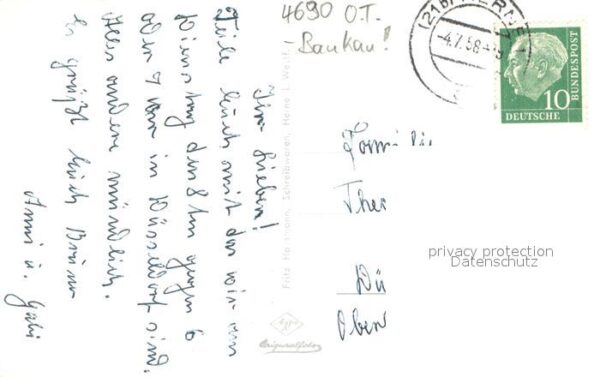 4690 O.T.
-Baukau!
(21b) HERNE
-4.7.58-
10
DEUTSCHE
BUNDESPOST
Ihr Lieben!
Teile Euch mit das wir am
Dienstag den 8ten gegen 6
oder 7 Uhr in Düsseldorf sind.
Alles andere mündlich.
Es grüßt Euch
Anni u. Gabi
Fritz Schreibwaren, Herne i. Westf.
Agfa
Originalfoto
Familie
Thei
Dü
Ober
privacy protection
Datenschutz